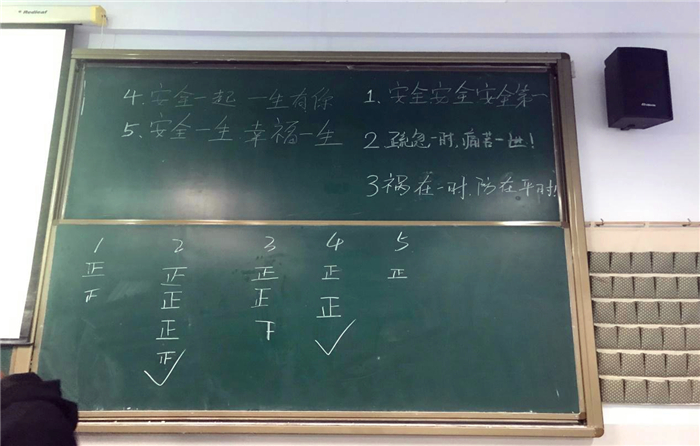 4.安全一起 一生有你
5.安全一生 幸福一生
1.安全安全安全第一
2 疏忽一时,痛苦一世!
3 祸在一时,防在平时!
1 2 3 4 5
正 正 正 正 正
正 正 正
正